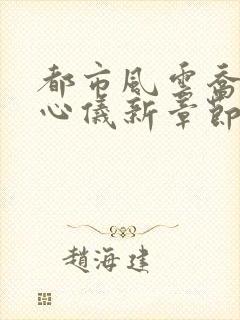 都市風雲喬
心儀新章節
趙海建